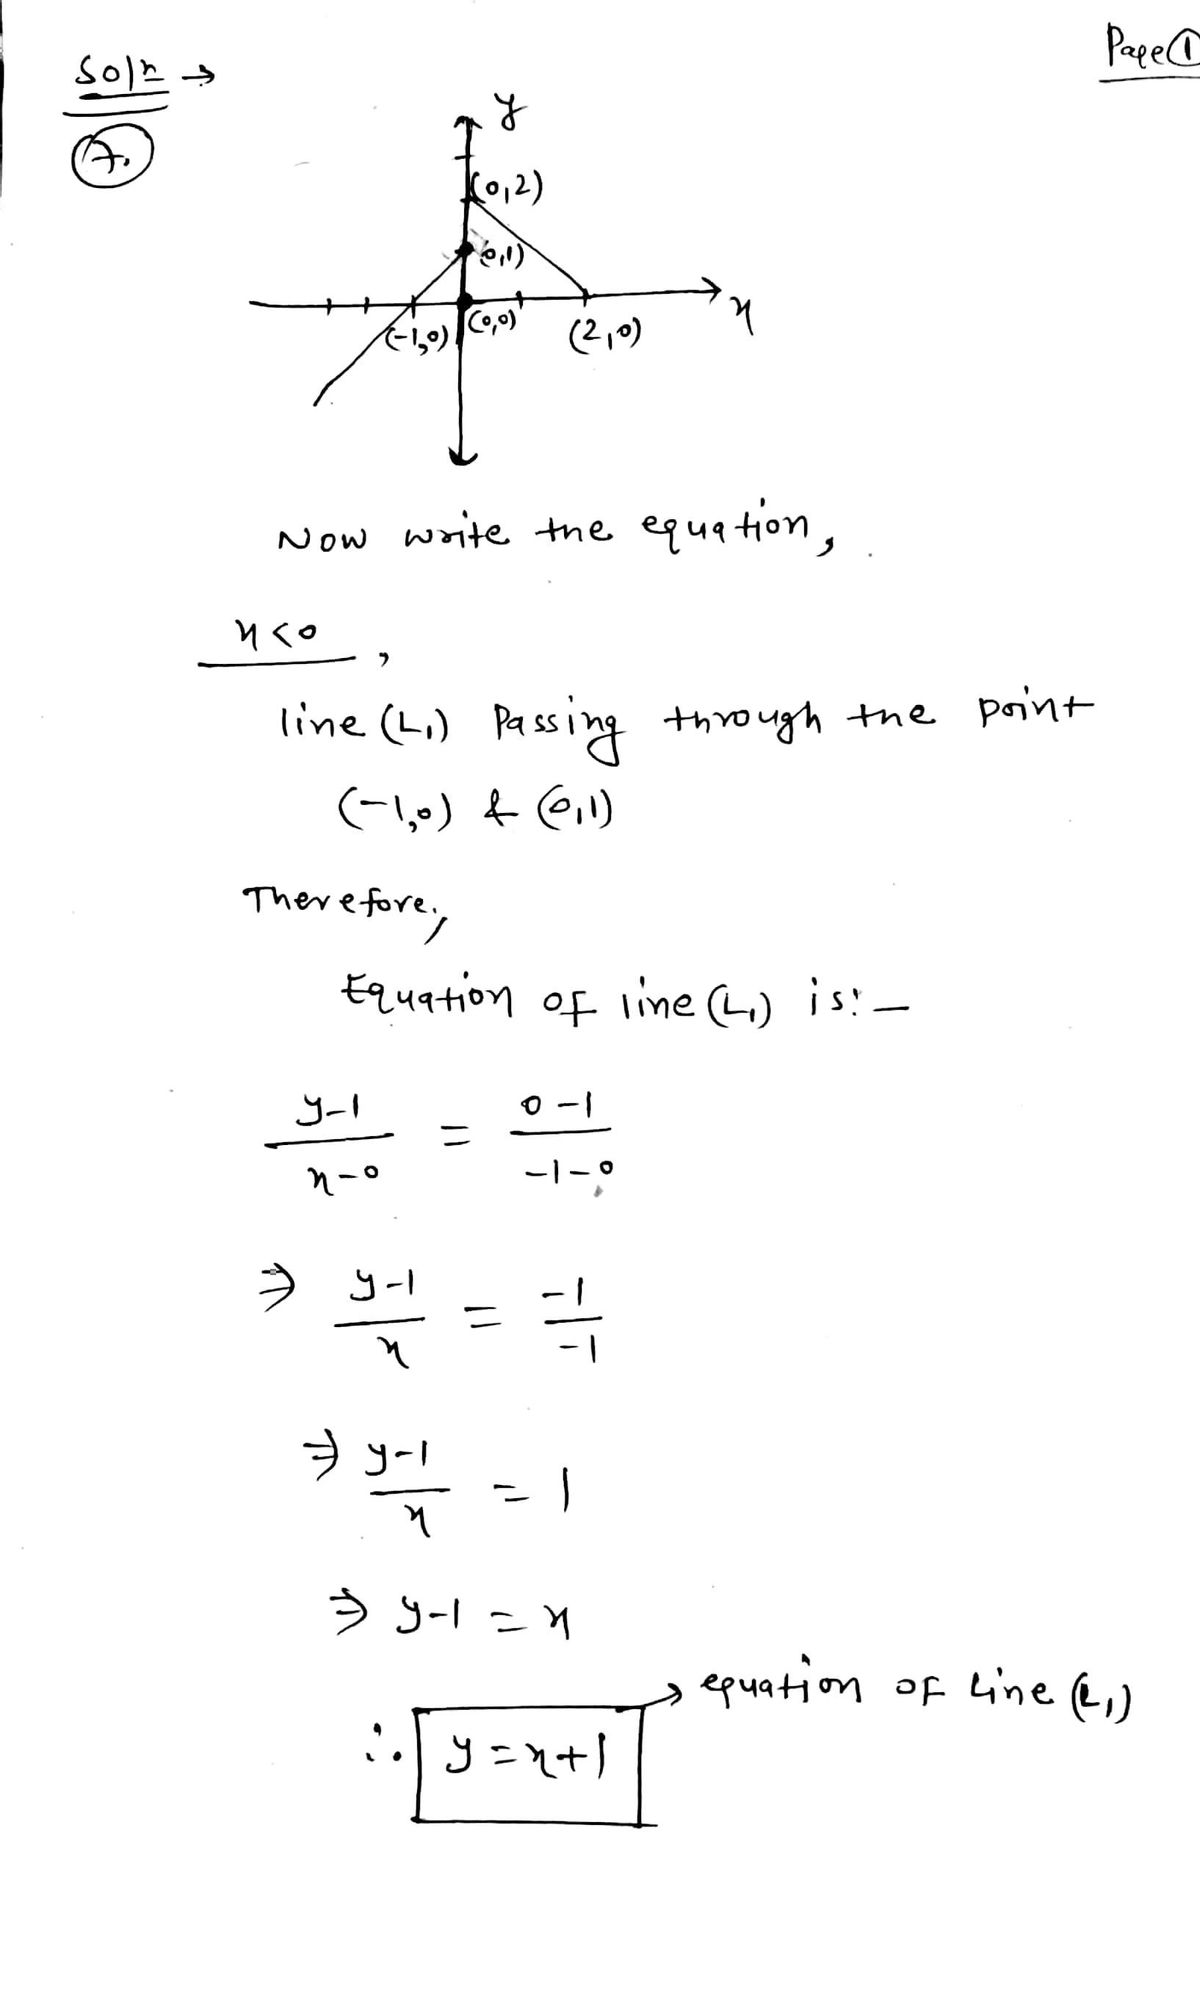 Page ①
Soln →
A.
y
(0,2)
(0,1)
(-1,0) (0,0) (2,0) x
Now write the equation,
x<0,
line (L₁) Passing through the point
(-1,0) & (0,1)
Therefore,
Equation of line (L₁) is:-
y-1 / x-0 = 0-1 / -1-0
⇒ y-1 / x = -1 / -1
⇒ y-1 / x = 1
⇒ y-1 = x
∴ y = x+1 → equation of Line (L₁)